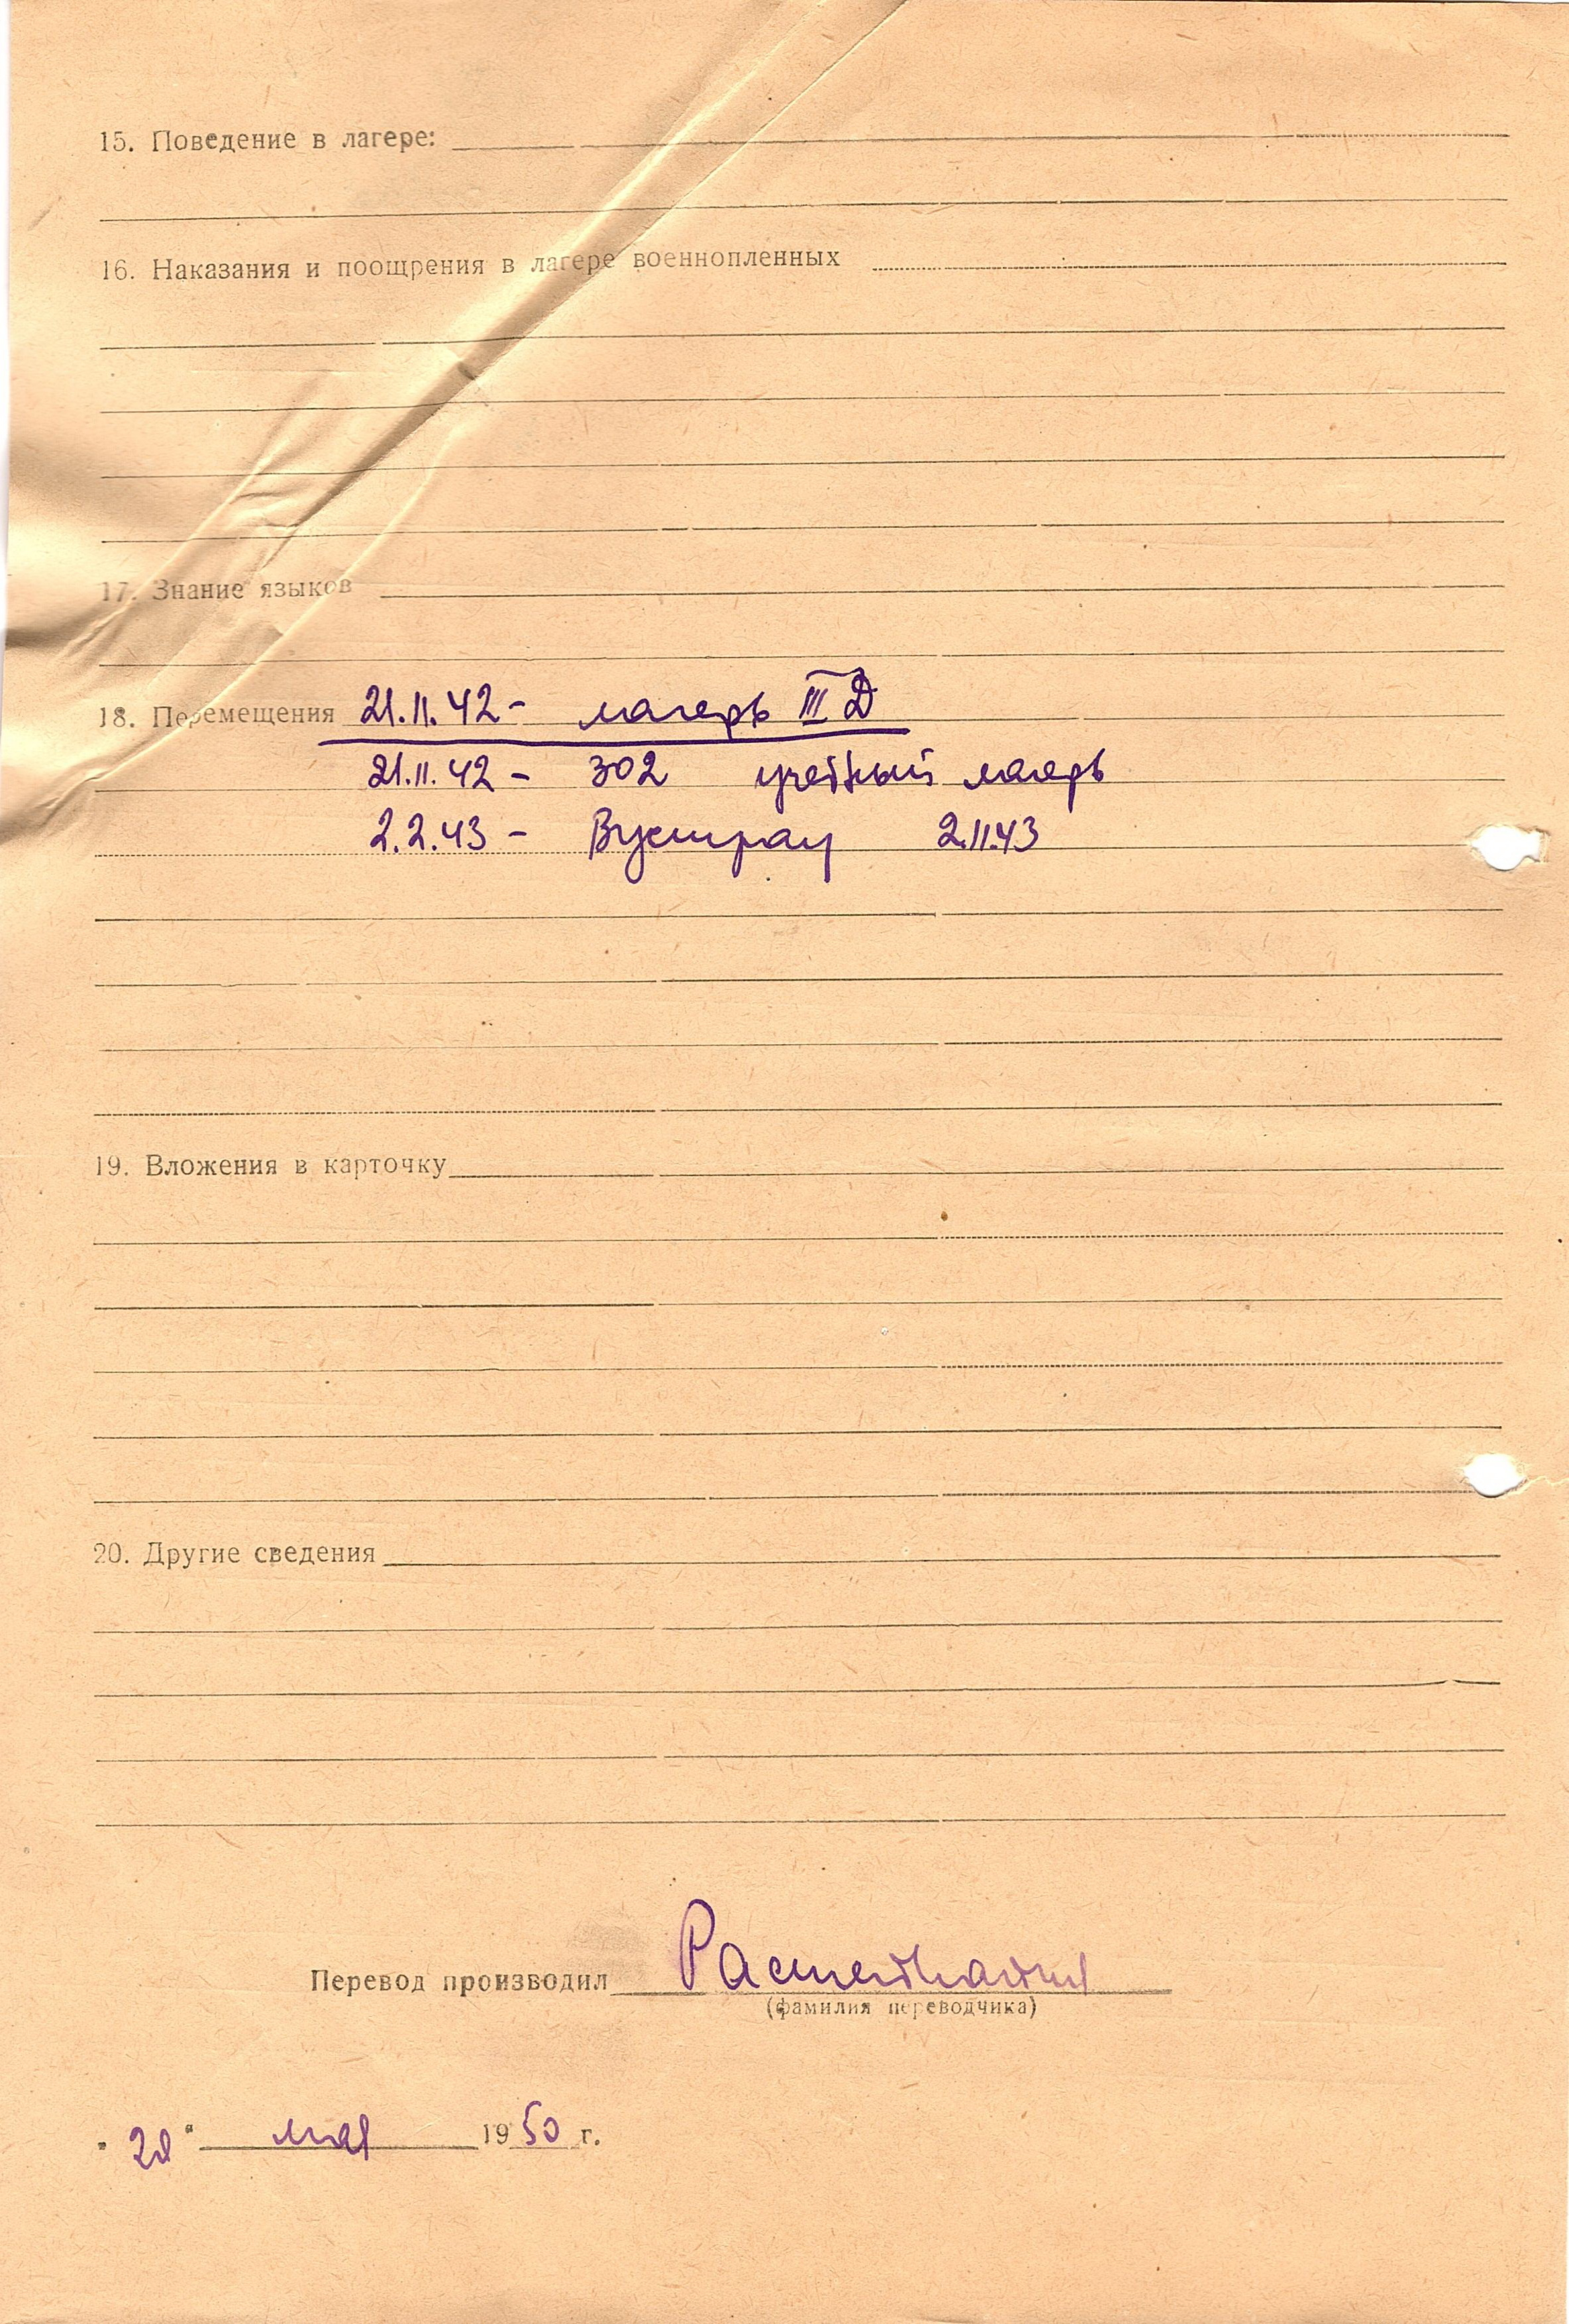 15. Поведение в лагере:
16. Наказания и поощрения в лагере военнопленных
17. Знание языков
18. Перемещения 21.11.42 - лагерь III Д
21.11.42 - 302 учебный лагерь
2.2.43 - Вустрау 2.11.43
19. Вложения в карточку
20. Другие сведения
Перевод производил
(фамилия переводчика)
" " мая 1950 г.